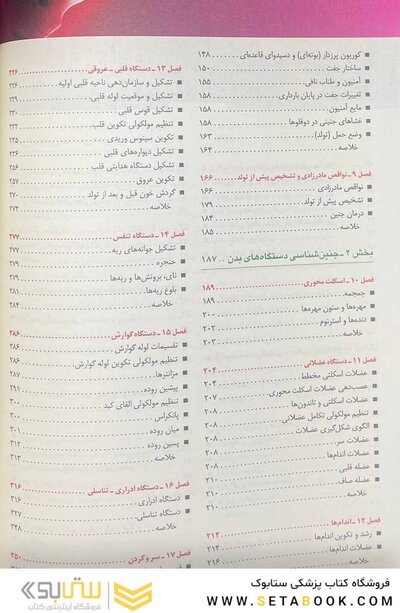 کوریون پرزدار (بوته‌ای) و دسیدوای قاعده‌ای ۱۴۸
ساختار جفت ۱۵۰
آمنیون و طناب نافی ۱۵۵
تغییرات جفت در پایان بارداری ۱۵۸
مایع آمنیون ۱۵۸
غشاهای جنینی در دوقلوها ۱۵۸
وضع حمل (تولد) ۱۶۳
خلاصه ۱۶۴
فصل ۹ ـ نواقص مادرزادی و تشخیص پیش از تولد ۱۶۶
نواقص مادرزادی ۱۶۶
تشخیص پیش از تولد ۱۷۹
درمان جنین ۱۸۴
خلاصه ۱۸۵
بخش ۲ ـ جنین‌شناسی دستگاه‌های بدن ۱۸۷
فصل ۱۰ ـ اسکلت محوری ۱۸۹
جمجمه ۱۸۹
مهره‌ها و ستون مهره‌ها ۱۹۸
دنده‌ها و استرنوم ۲۰۲
خلاصه ۲۰۳
فصل ۱۱ ـ دستگاه عضلانی ۲۰۴
عضلات اسکلتی مخطط ۲۰۴
عصب‌دهی عضلات اسکلت محوری ۲۰۷
عضلات اسکلتی و تاندون‌ها ۲۰۸
تنظیم مولکولی تکامل عضلانی ۲۰۸
الگوی شکل‌گیری عضلات ۲۰۸
عضلات سر ۲۰۸
عضلات اندام‌ها ۲۰۸
عضله قلبی ۲۱۰
عضله صاف ۲۱۰
خلاصه ۲۱۰
فصل ۱۲ ـ اندام‌ها ۲۱۳
رشد و تکوین اندام‌ها ۲۱۳
عضلات اندام‌ها ۲۱۶
فصل ۱۳ ـ دستگاه قلبی ـ عروقی ۲۲۶
تشکیل و سازمان‌دهی ناحیه قلبی اولیه ۲۲۶
تشکیل و موقعیت لوله قلبی
تشکیل قوس قلبی ۲۳۰
تنظیم مولکولی تکوین قلب
تکوین سینوس وریدی
تشکیل دیواره‌های قلبی
تشکیل دستگاه هدایتی قلب
تکوین عروق ۲۵۷
گردش خون قبل و بعد از تولد ۲۷۰
خلاصه ۲۷۴
فصل ۱۴ ـ دستگاه تنفس ۲۷۷
تشکیل جوانه‌های ریه ۲۷۷
حنجره
نای، برونش‌ها و ریه‌ها
بلوغ ریه‌ها
خلاصه ۲۸۴
فصل ۱۵ ـ دستگاه گوارش ۲۸۶
تقسیمات لوله گوارش ۲۸۶
تنظیم مولکولی تکوین لوله گوارش
مزانترها
پیشین روده ۲۹۱
تنظیم مولکولی القای کبد ۳۰۰
پانکراس ۳۰۰
میان روده
پسین روده ۳۱۲
خلاصه ۳۱۳
فصل ۱۶ ـ دستگاه ادراری ـ تناسلی ۳۱۶
دستگاه ادراری ۳۱۶
دستگاه تناسلی
خلاصه ۳۴۸
فصل ۱۷ ـ سر و گردن ۳۵۰
ستابوک
فروشگاه اینترنتی کتاب
فروشگاه کتاب پزشکی ستابوک
WWW.SETABOOK.COM